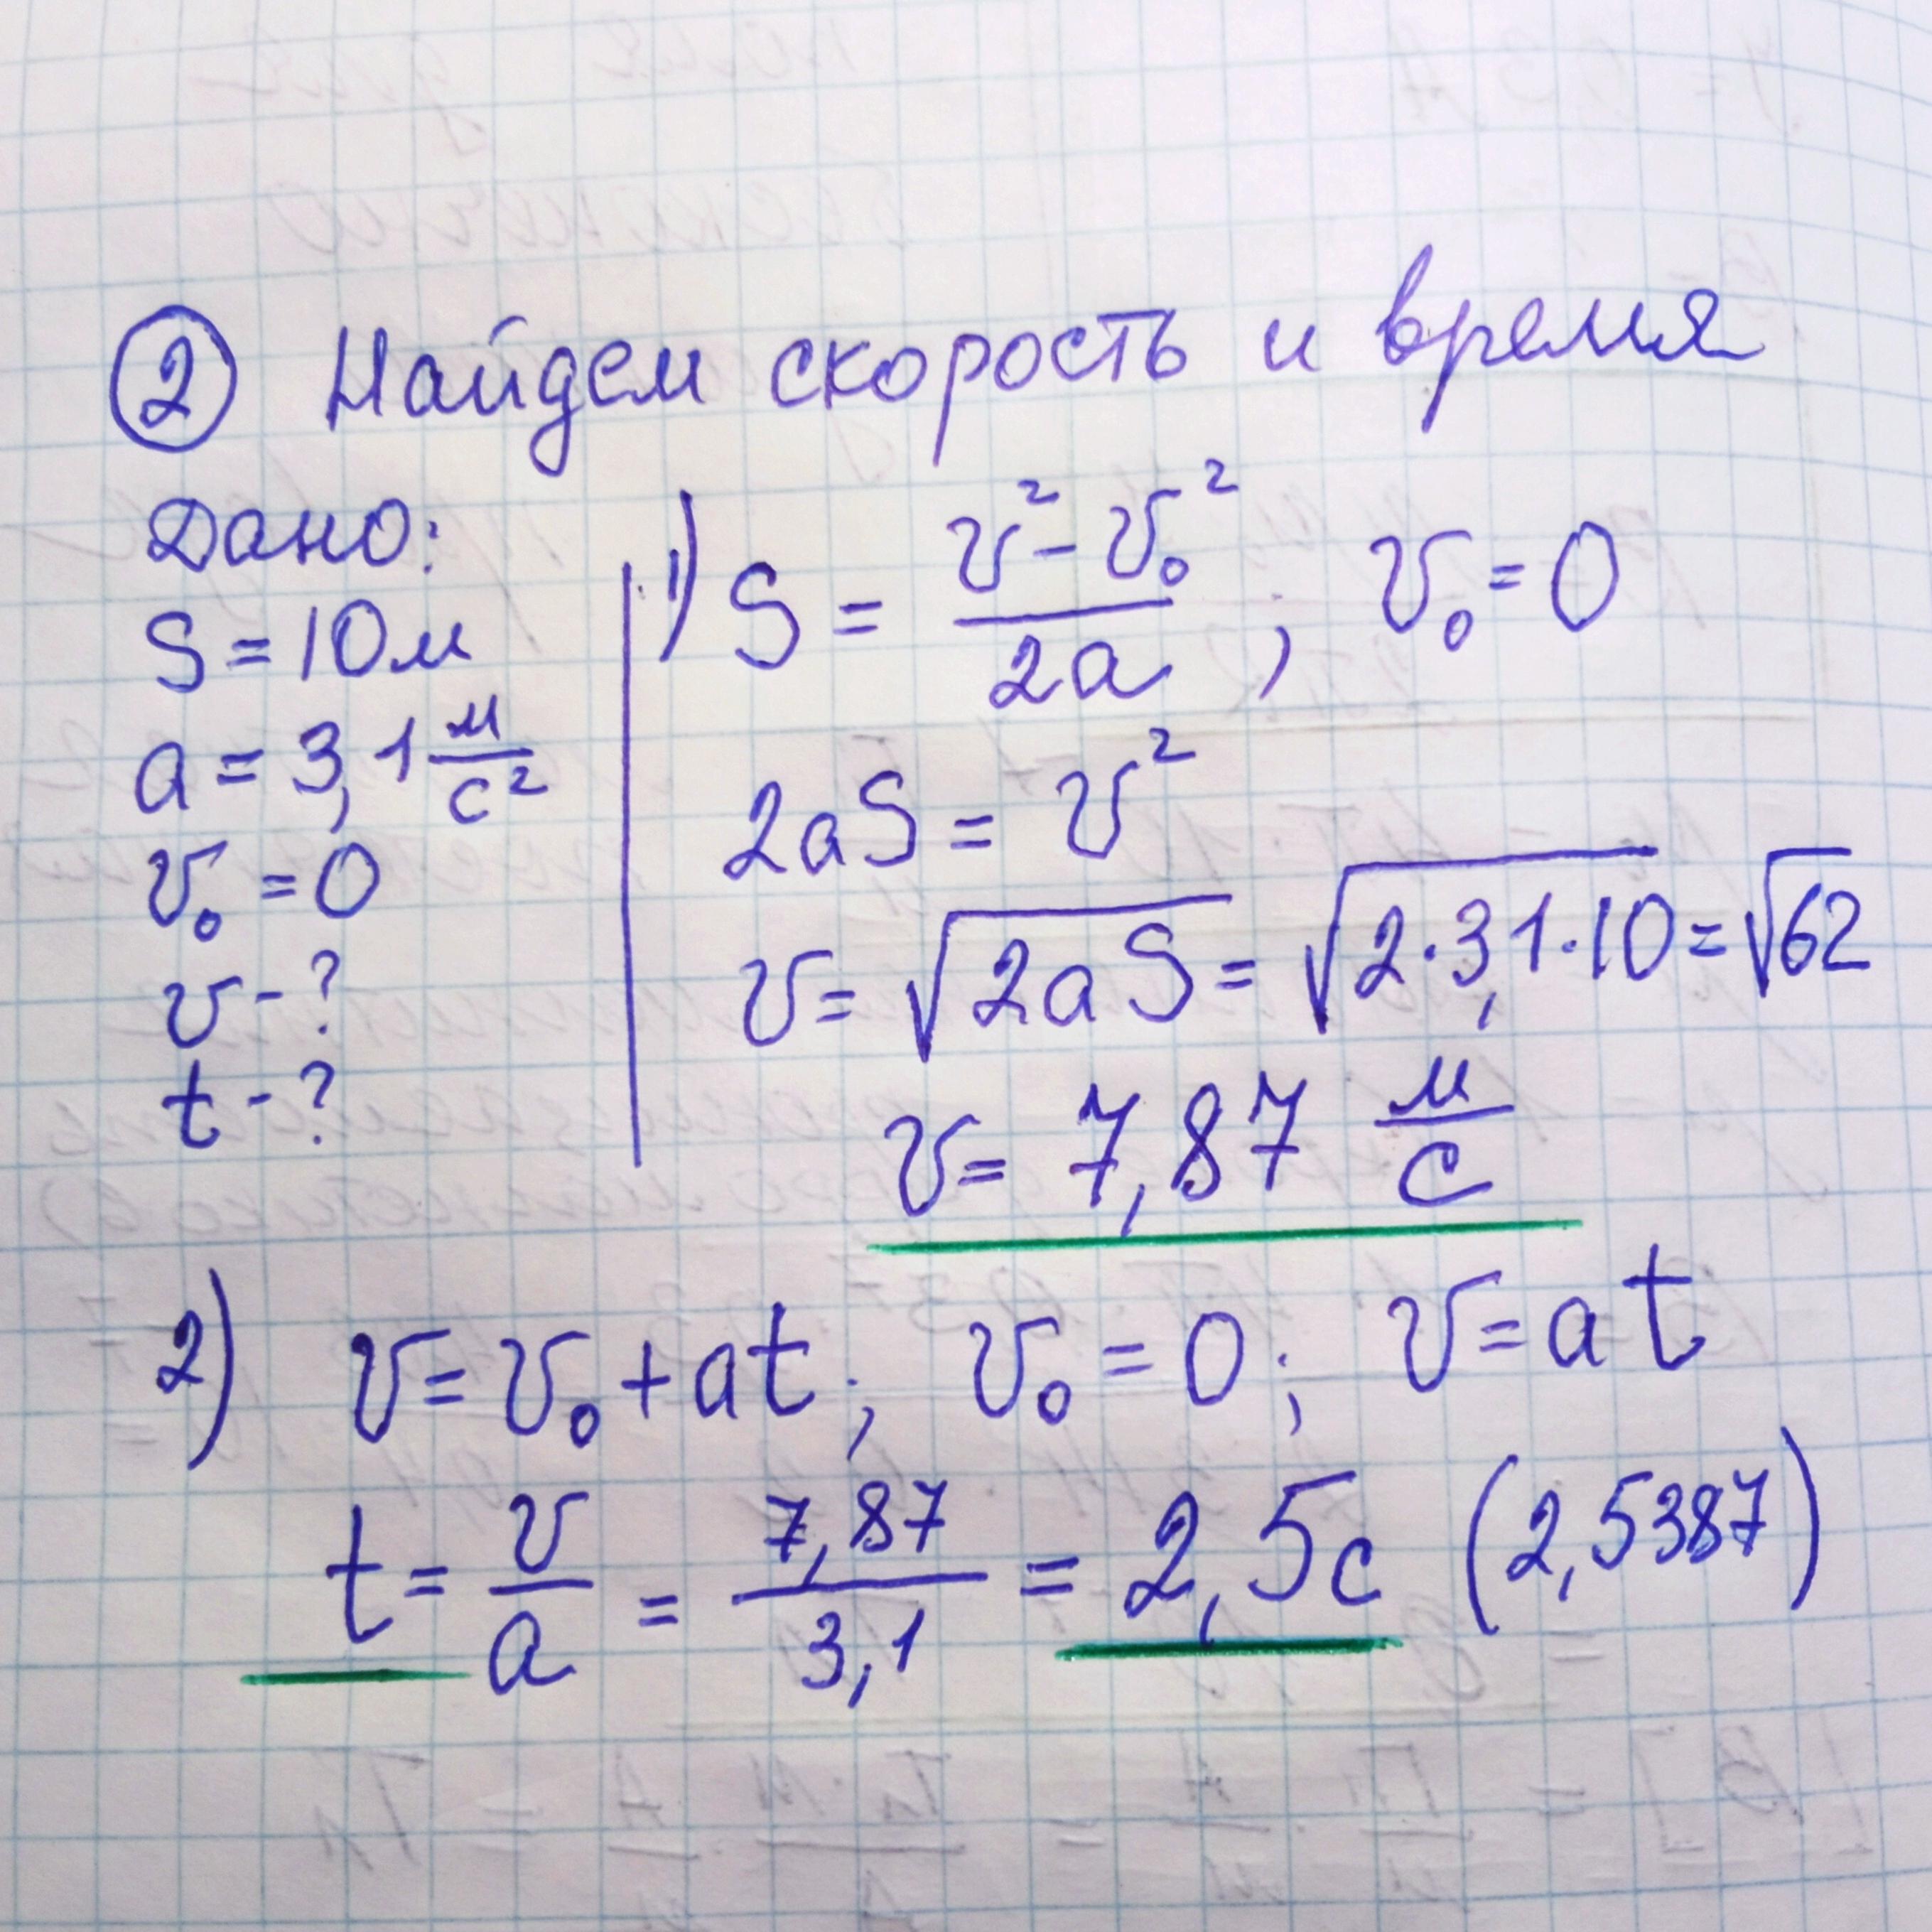 ② Найдем скорость и время
Дано:
S = 10м
a = 3,1 м/с²
v₀ = 0
v - ?
t - ?
1) S = (v² - v₀²)/2a ; v₀ = 0
2aS = v²
v = √2aS = √2·3,1·10 = √62
v = 7,87 м/с
2) v = v₀ + at ; v₀ = 0 ; v = at
t = v/a = 7,87/3,1 = 2,5с (2,5387)